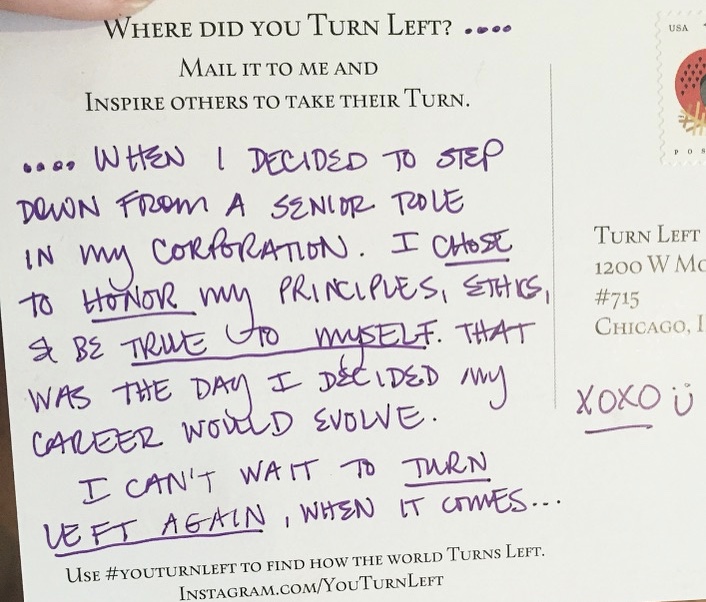 WHERE DID YOU TURN LEFT? ....
MAIL IT TO ME AND
INSPIRE OTHERS TO TAKE THEIR TURN.
.... WHEN I DECIDED TO STEP
DOWN FROM A SENIOR ROLE
IN MY CORPORATION. I CHOSE
TO HONOR MY PRINCIPLES, ETHICS,
& BE TRUE TO MYSELF. THAT
WAS THE DAY I DECIDED MY
CAREER WOULD EVOLVE.
I CAN'T WAIT TO TURN
LEFT AGAIN, WHEN IT COMES...
USE #YOUTURNLEFT TO FIND HOW THE WORLD TURNS LEFT.
INSTAGRAM.COM/YOUTURNLEFT
USA
TURN LEFT
1200 W
#715
CHICAGO,
XOXO